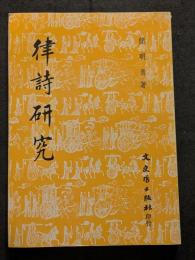 律詩研究
簡明勇著
文史哲出版社印行